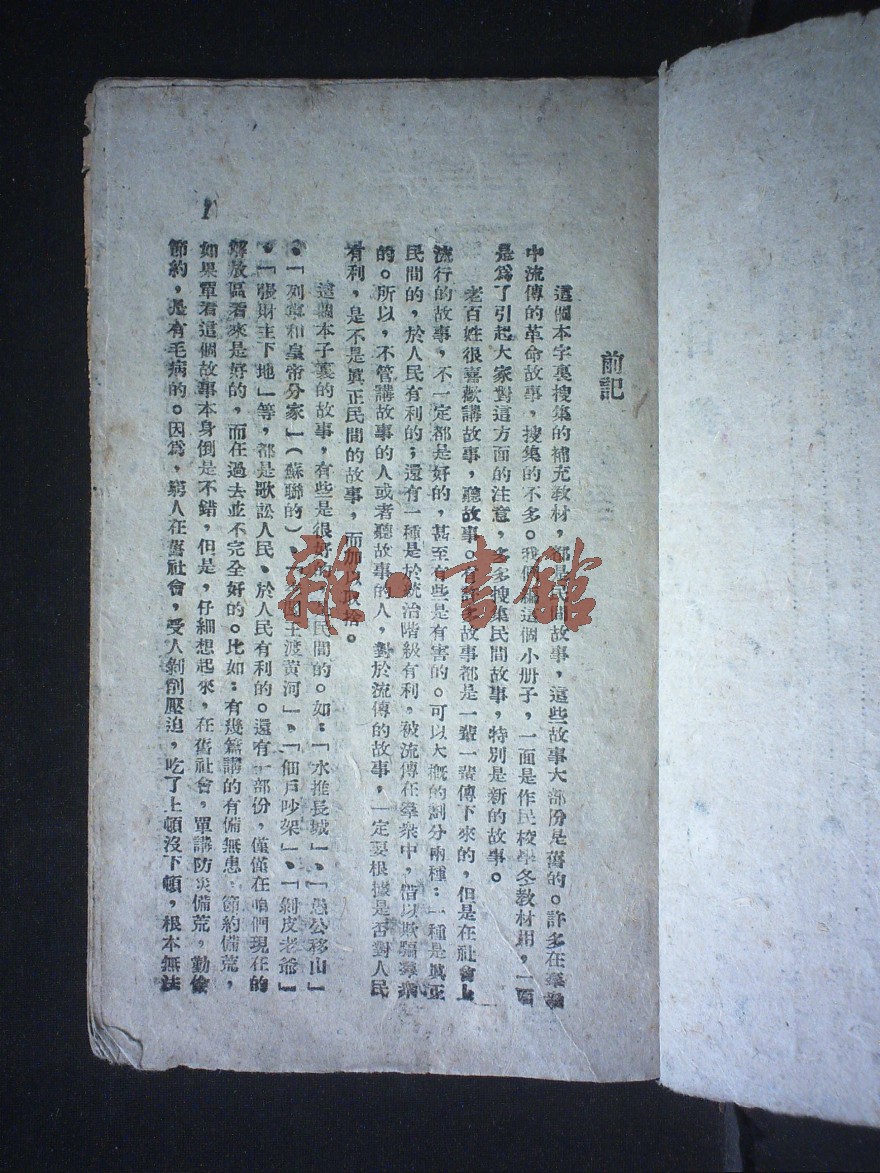 前記
這個本字裏搜集的補充教材，都是民間故事，這些故事大部份是舊的。許多在羣衆
中流傳的革命故事，搜集的不多。我們編這個小册子，一面是作民校學冬教材用，一面
是爲了引起大家對這方面的注意，多多搜集民間故事，特別是新的故事。
老百姓很喜歡講故事，聽故事。有許多故事都是一輩一輩傳下來的，但是在社會上
流行的故事，不一定都是好的，甚至有些是有害的。可以大概的劃分兩種：一種是眞正
民間的，於人民有利的；還有一種是於統治階級有利，被流傳在羣衆中，借以欺騙羣衆
的。所以，不管講故事的人或者聽故事的人，對於流傳的故事，一定要根據是否對人民
有利，是不是眞正民間的故事，而加以取捨。
這個本子裏的故事，有些是很好的，民間的。如：「水推長城」、「愚公移山」
、「列寧和皇帝分家」（蘇聯的）、「王渡黃河」、「佃戶吵架」、「剝皮老爺」
、「張財主下地」等，都是歌訟人民、於人民有利的。還有一部份，僅僅在咱們現在的
解放區看來是好的，而在過去並不完全好的。比如：有幾篇講的有備無患，節約備荒，
如果單看這個故事本身倒是不錯，但是，仔細想起來，在舊社會，單講防災備荒，勤儉
節約，是有毛病的。因爲，窮人在舊社會，受人剝削壓迫，吃了上頓沒下頓，根本無法
1
雜·書館